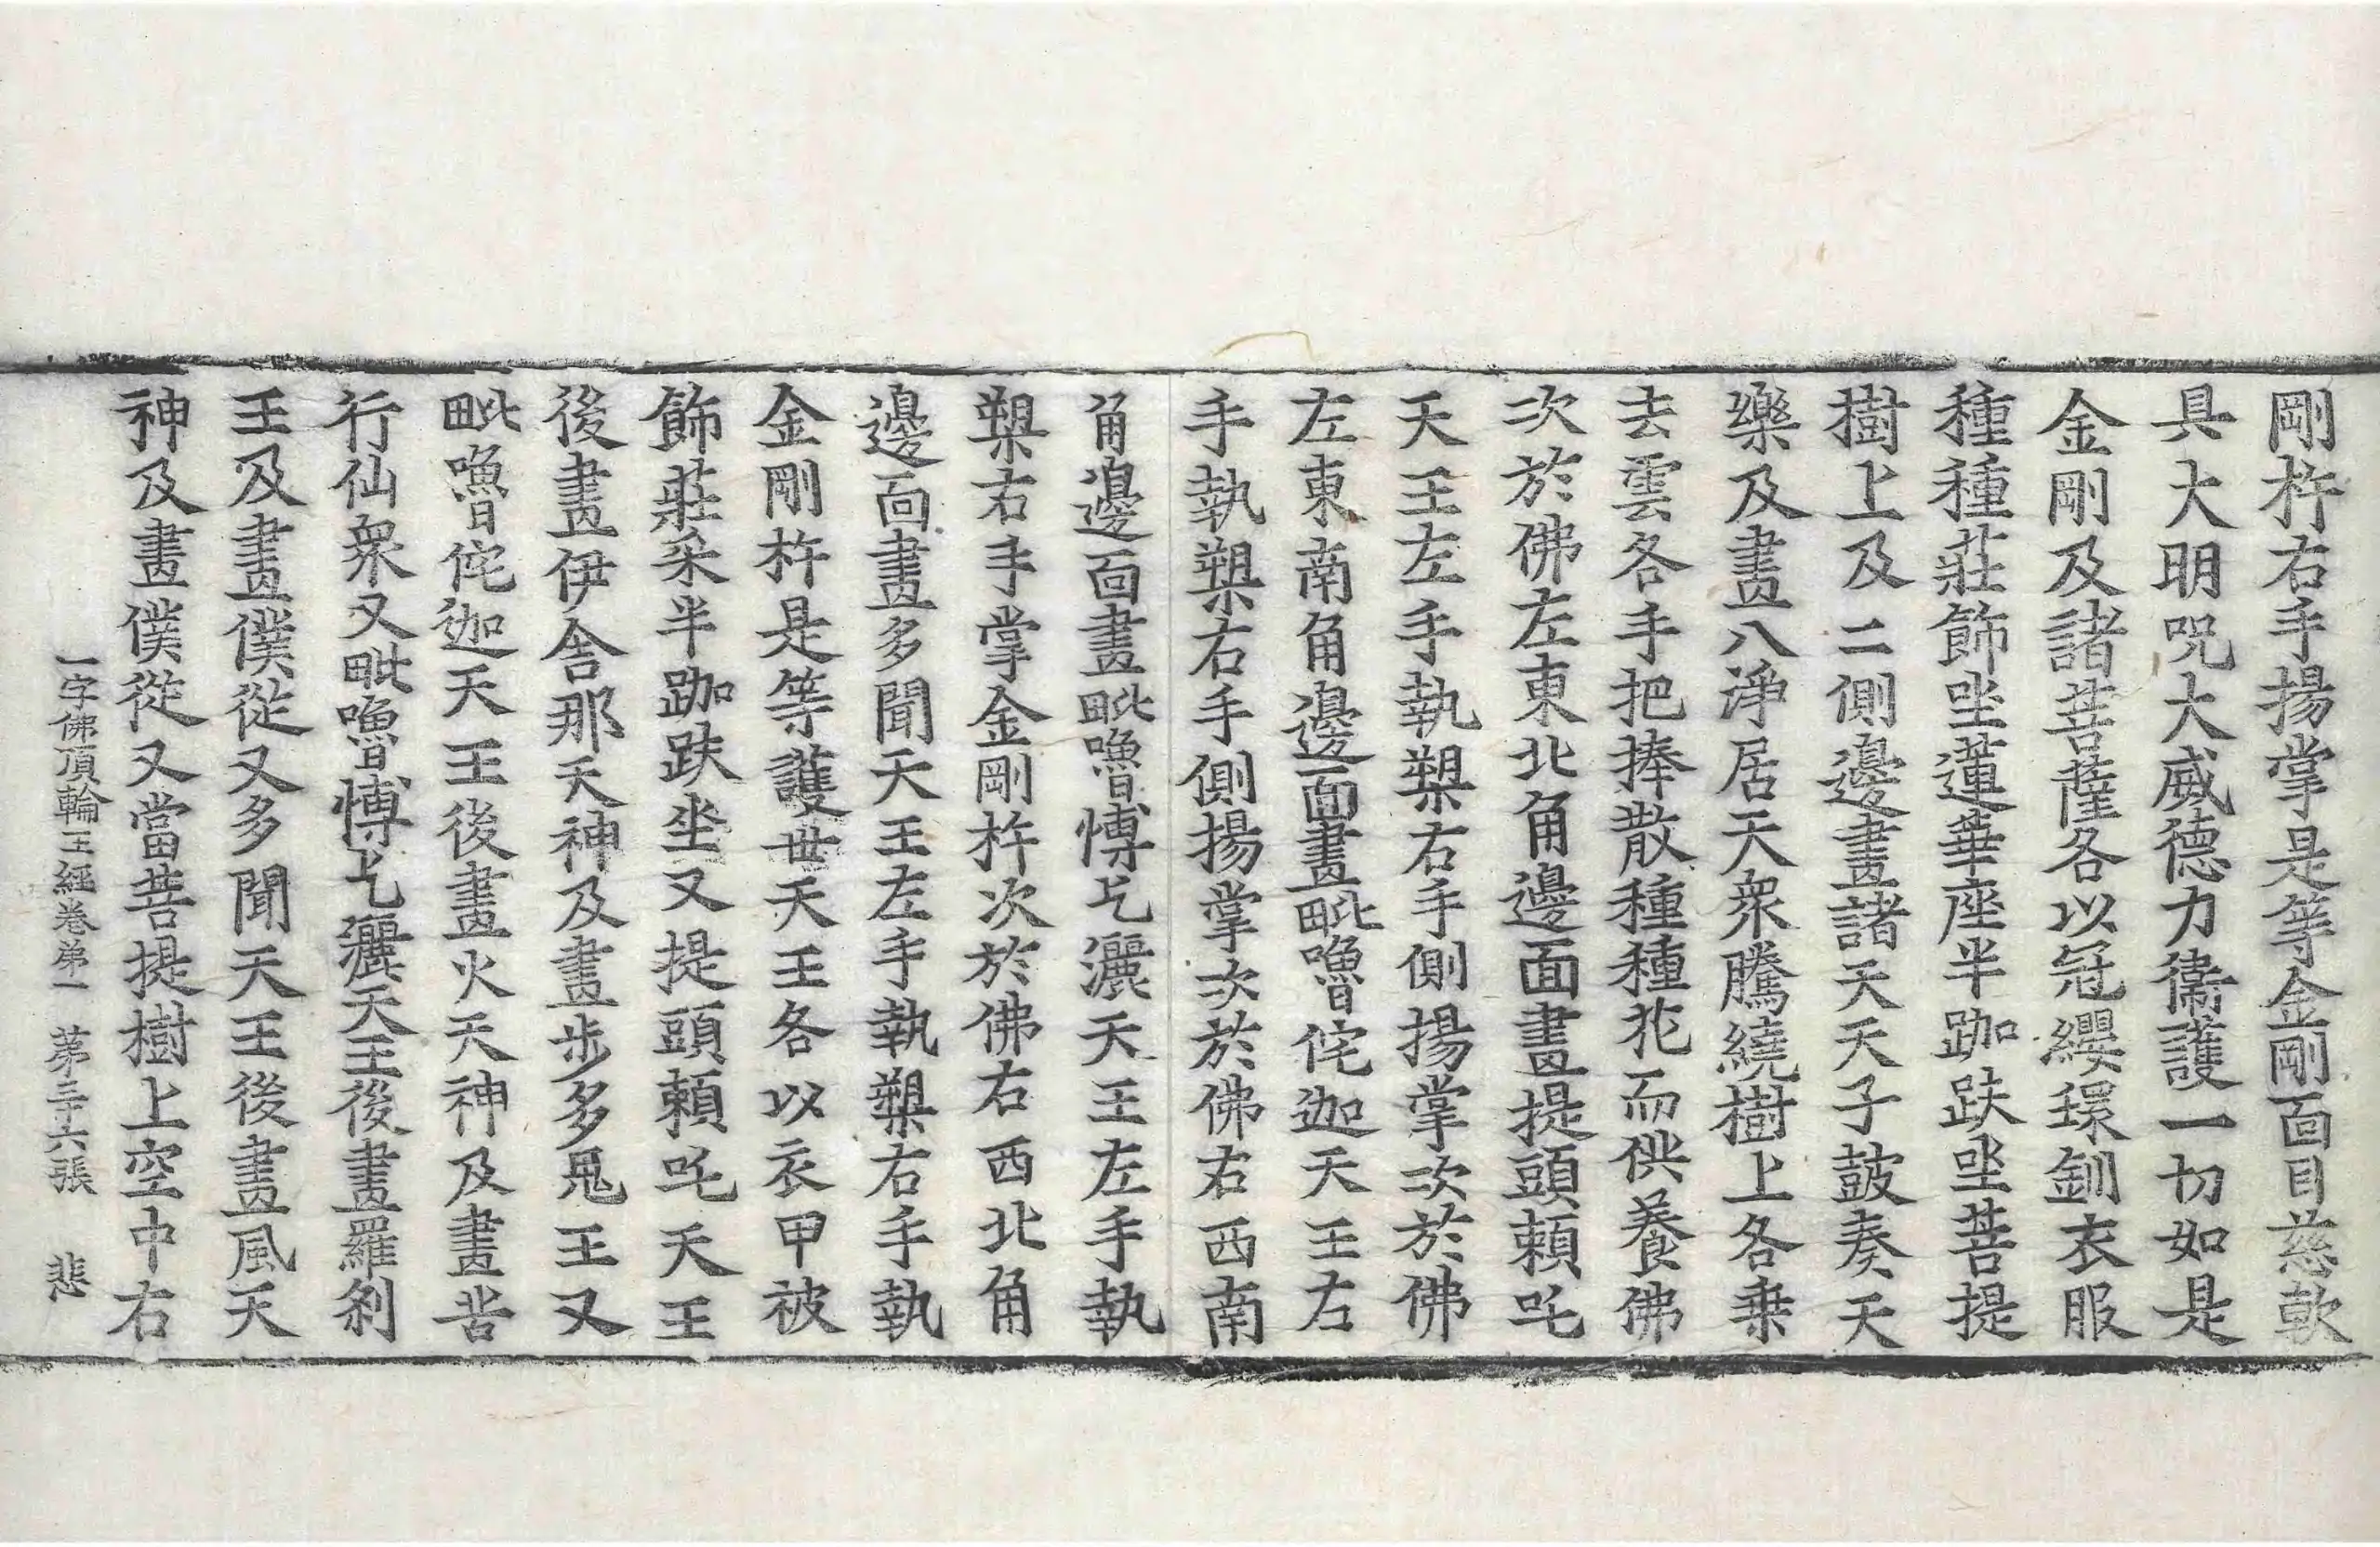 剛杵右手揚掌是等金剛面目慈軟
具大明呪大威德力衞護一切如是
金剛及諸菩薩各以冠纓環釧衣服
種種莊飾坐蓮華座半跏趺坐菩提
樹上及二側邊畫諸天天子皷奏天
樂及畫八淨居天衆騰繞樹上各乗
去雲各手把捧散種種花而供養佛
次於佛左東北角邊面畫提頭頼吒
天王左手執槊右手側揚掌次於佛
左東南角邊面畫毗嚕侘迦天王右
手執槊右手側揚掌次於佛右西南
角邊面畫毗嚕愽乞灑天王左手執
槊右手掌金剛杵次於佛右西北角
邊面畫多聞天王左手執槊右手執
金剛杵是等護世天王各以衣甲被
飾莊采半跏趺坐又提頭頼吒天王
後畫伊舍那天神及畫步多鬼王又
毗嚕侘迦天王後畫火天神及畫苦
行仙衆又毗嚕愽乞灑天王後畫羅剎
王及畫僕從又多聞天王後畫風天
神及畫僕從又當菩提樹上空中右
一字佛頂輪王經卷第一 第三十六張 悲